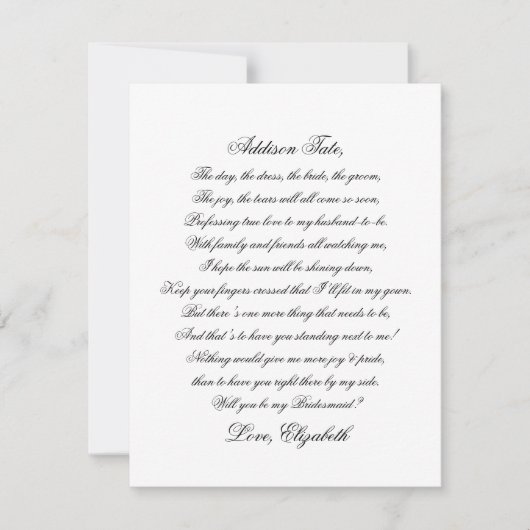 Addison Tate,
The day, the dress, the bride, the groom,
The joy, the tears will all come so soon,
Professing true love to my husband-to-be.
With family and friends all watching me,
I hope the sun will be shining down,
Keep your fingers crossed that I'll fit in my gown.
But there's one more thing that needs to be,
And that's to have you standing next to me!
Nothing would give me more joy & pride,
than to have you right there by my side.
Will you be my Bridesmaid?
Love, Elizabeth